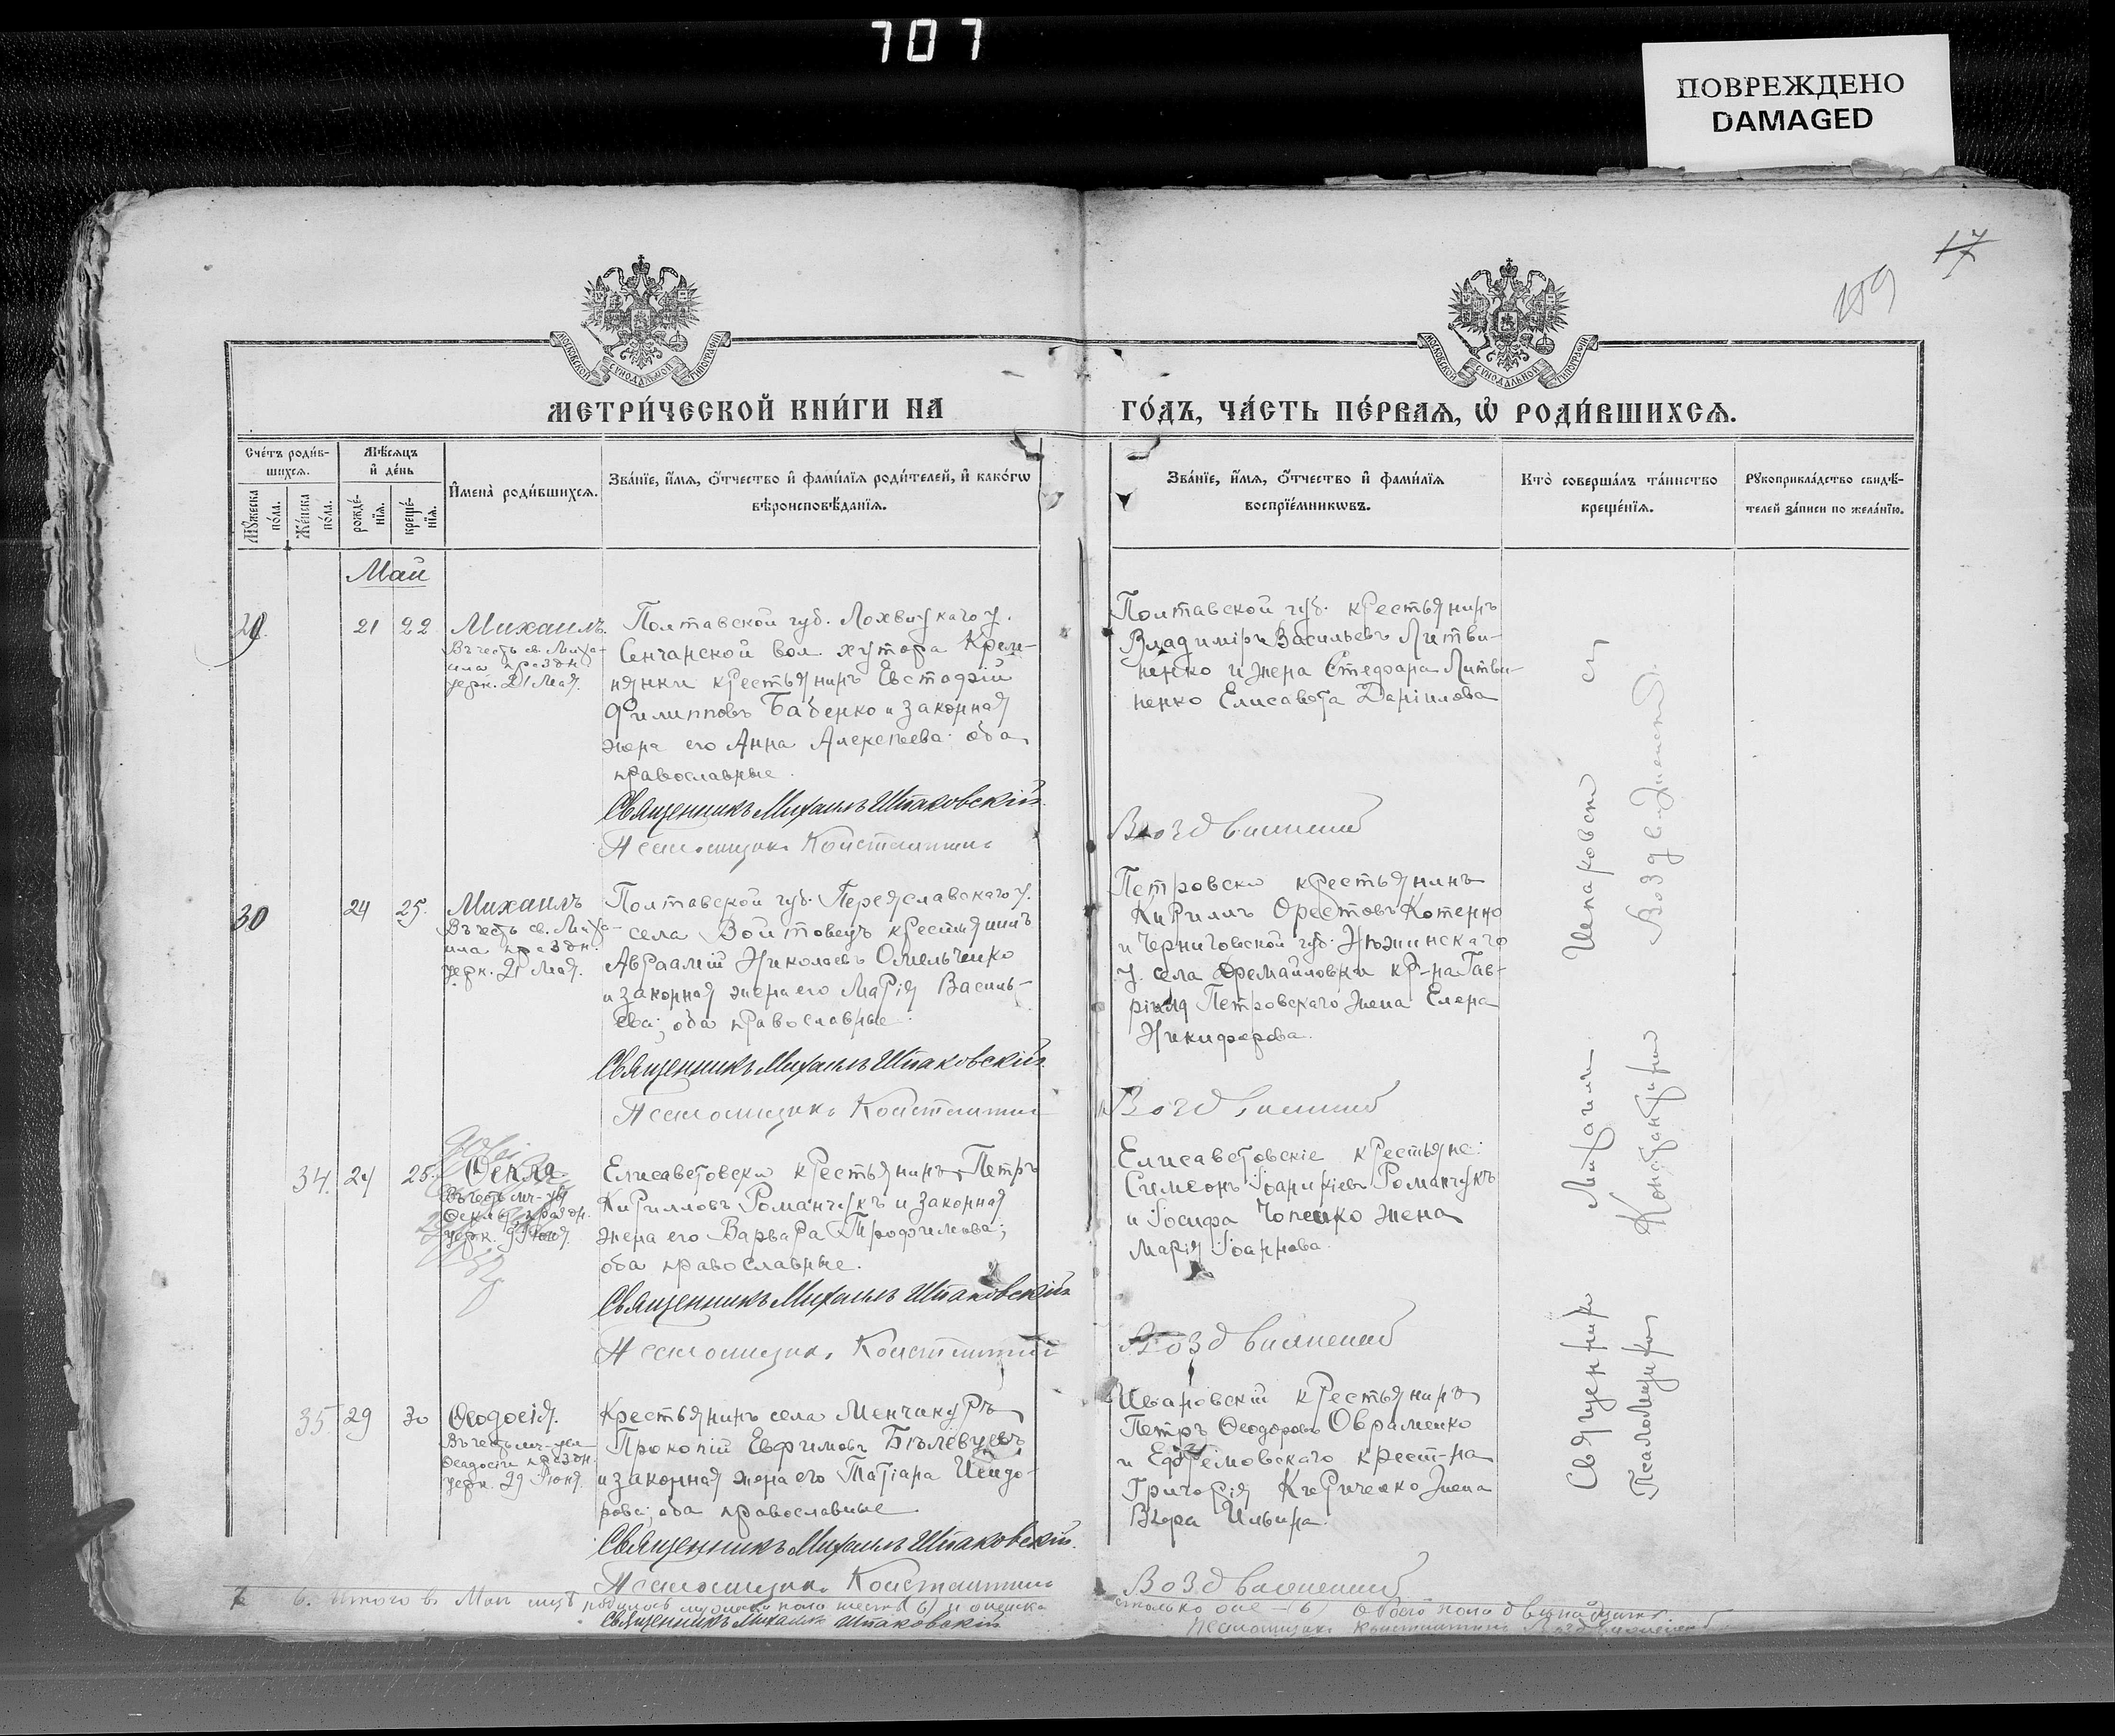 707
ПОВРЕЖДЕНО
DAMAGED
17
109
МОСКОВСКОЙ СѴНОДАЛЬНОЙ ТИПОГРАФІИ
МОСКОВСКОЙ СѴНОДАЛЬНОЙ ТИПОГРАФІИ
МЕТРИ́ЧЕСКОЙ КНИ́ГИ НА
ГО́ДЪ, ЧА́СТЬ ПЕ́РВАЯ, Ѡ РОДИ́ВШИХСЯ.
Сче́тъ роди́в-
шихся.
Мѣ́сяцъ
и де́нь
Мꙋ́жеска
по́ла.
Же́нска
по́ла.
рожде́-
нїя.
креще́-
нїя.
Имена̀ роди́вшихся.
Зва́нїе, и́мя, о́тчество и фами́лїя роди́телей, и како́гѡ
вѣроисповѣ́данїя.
Зва́нїе, и́мя, о́тчество и фами́лїя
воспрїе́мникѡвъ.
Кто̀ соверша́лъ та́инство
креще́нїя.
Рꙋкоприкла́дство свидѣ́-
телей за́писи по жела́нїю.
Май
29
21 22
Михаилъ.
Въ честь св. Миха-
ила праздн.
церк. 21 Мая.
Полтавской губ. Лохвицкаго у.
Сенчанской вол. хутора Крем-
нянки крестьянинъ Евстафій
Филипповъ Бабенко и законная
жена его Анна Алексѣева; оба
православные.
Священникъ Михаилъ Шпаковскій.
Псаломщикъ Константинъ
Полтавской губ. крестьянинъ
Владиміръ Васильевъ Литви-
ненко и жена Стефана Литви-
ненко Елисавета Даніилова
Воздвиженскій
30
24 25.
Михаилъ
Въ честь св. Миха-
ила праздн.
церк. 21 Мая.
Полтавской губ. Переяславскаго у.
села Войтовецъ крестьянинъ
Авраамій Николаевъ Омельченко
и законная жена его Марія Василь-
ева; оба православные.
Священникъ Михаилъ Шпаковскій.
Псаломщикъ Константинъ
Петровскій крестьянинъ
Кириллъ Орестовъ Котенко
и Черниговской губ. Нѣжинскаго
у. села кр-на Гав-
ріила Петровскаго жена Елена
Никифорова.
Воздвиженскій
34. 24 25.
Ѳекла
Въ честь мч-цы
Ѳеклы праздн.
церк. 9 Іюня.
Елисаветовскій крестьянинъ Петръ
Кирилловъ Романчукъ и законная
жена его Варвара Трофимова;
оба православные.
Священникъ Михаилъ Шпаковскій.
Псаломщикъ Константинъ
Елисаветовскіе крестьяне:
Симеонъ Романчукъ
и Іосифа жена
Марія Іоаннова.
Воздвиженскій
35. 29 30
Ѳеодосія.
Въ честь мч-цы
Ѳеодосіи праздн.
церк. 29 Іюня.
Крестьянинъ села Менчикуръ
Прокопій Евфимовъ Бѣлевцевъ
и законная жена его Татіана Исидо-
рова; оба православные
Священникъ Михаилъ Шпаковскій.
Псаломщикъ Константинъ
Ивановскій крестьянинъ
Петръ Ѳеодоровъ Овраменко
и Ефремовскаго крест-на
Григорія Кириченко жена
Вѣра Ильина.
Воздвиженскій
Священникъ Михаилъ Шпаковскій
Псаломщикъ Константинъ Воздвиженскій.
6. Итого въ Маѣ м-цѣ родилось мужеска пола шесть (6) и женска
столько же (6) обоего пола двѣнадцать.
Священникъ Михаилъ Шпаковскій
Псаломщикъ Константинъ Воздвиженскій